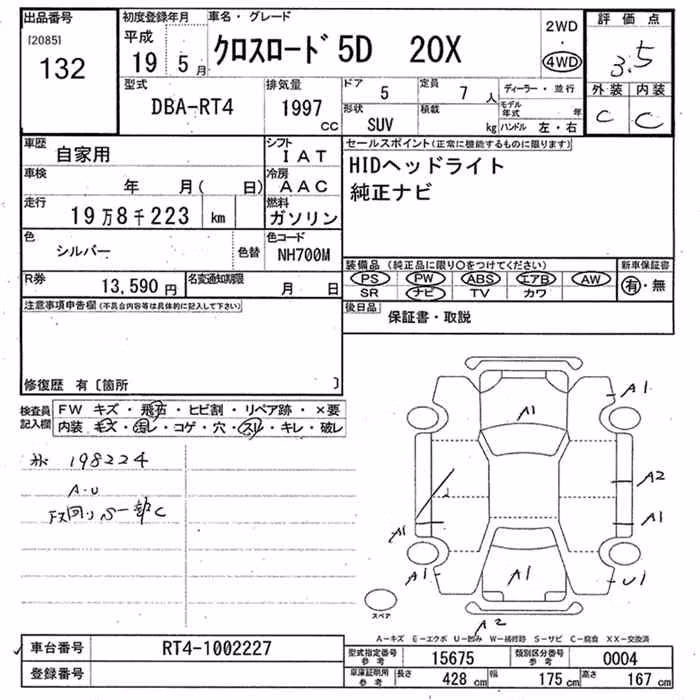 出品番号 初度登録年月 車名・グレード 2WD 評価点
[2085] 平成 ・
132 19 5月 クロスロード 5D 20X 4WD 3.5
型式 排気量 ドア 5 定員 7人 ディーラー・並行 外装 内装
DBA-RT4 1997 cc 形状 SUV 積載 kg モデル年式 年 C C
ハンドル 左・右
車歴 自家用 シフト IAT セールスポイント(正常に機能するものに限ります)
車検 年 月( 日) 冷房 AAC HIDヘッドライト
走行 19万8千223 km 燃料 ガソリン 純正ナビ
色 シルバー 色替 色コード NH700M
装備品(純正品に限り〇をつけてください) 新車保証書
R券 13,590円 名変通知期限 月 日 PS PW ABS エアB AW 有・無
SR ナビ TV カワ
注意事項申告欄(不具合内容等は具体的に記入して下さい) 後日品 保証書・取説
修復歴 有〔箇所 〕
検査員 FW キズ・飛石・ヒビ割・リペア跡・×要
記入欄 内装 キズ・汚レ・コゲ・穴・スリ・キレ・破レ
198224
A-U
下回りS一部C
A1
A1
A2
A1
A1
A1
A1
U1
スペア
A2
A-キズ E-エクボ U-凹み W-補修跡 S-サビ C-腐食 XX-交換済
車台番号 RT4-1002227 型式指定番号 参考 15675 類別区分番号 参考 0004
登録番号 車庫証明用 参考 長さ 428 cm 幅 175 cm 高さ 167 cm